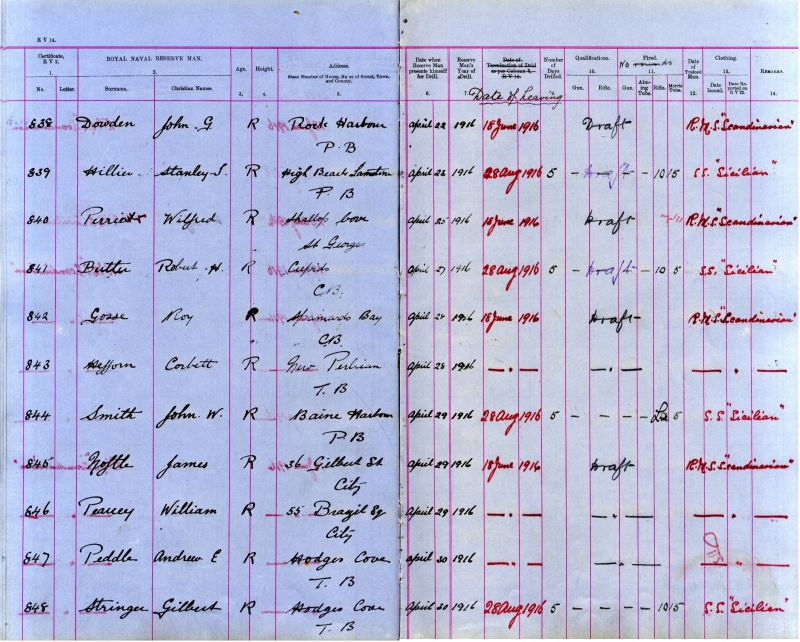 R V 14.
Certificate, R V 2. ROYAL NAVAL RESERVE MAN. Age. Height. Address. Date when Reserve Man presents himself for Drill. Reserve Man's Year of Drill. Date of Termination of Drill as per Column 5, R V 12. Number of Days Drilled. Qualifications. No rounds Fired. Date of Trained Man. Clothing. REMARKS.
State Number of House, Name of Street, Town, and County.
1. 2. 3. 4. 5. 6. 7. Date of Leaving 9. 10. 11. 12. 13. 14.
No. Letter. Surname. Christian Names. Gun. Rifle. Gun. Aiming Tube. Rifle. Morris Tube. Date Issued. Date Reported on R V 22.
838 Dowden John G. R Rock Harbour April 22 1916 18 June 1916 Draft R.M.S. "Scandinavian"
P. B
839 Hillier Stanley J. R High Beach Lamaline April 23 1916 28 Aug 1916 5 - Draft - 10 15 S.S. "Sicilian"
P. B
840 Wilfred R Shallop Cove April 25 1916 18 June 1916 Draft R.M.S. "Scandinavian"
St Georges
841 Butler Robert H. R Cupids April 27 1916 28 Aug 1916 5 - Draft - 10 5 S.S. "Sicilian"
C.B.
842 Gosse Roy R Spaniards Bay April 28 1916 18 June 1916 Draft R.M.S. "Scandinavian"
C.B.
843 Heffern Corbett R New Perlican April 28 1916 — . — — . — — . —
T. B
844 Smith John. W. R Baine Harbour April 29 1916 28 Aug 1916 5 - - - - 5 S.S. "Sicilian"
P. B
845 James R 36 Gilbert St April 29 1916 18 June 1916 Draft R.M.S. "Scandinavian"
City
846 Pearcey William R 55 Brazil Sq April 29 1916 — . — — " — — . —
City
847 Peddle Andrew E R Hodges Cove April 30 1916 — . — — " — — . —
T. B
848 Stringer Gilbert R Hodges Cove April 30 1916 28 Aug 1916 5 - - - - 10 15 S.S. "Sicilian"
T. B